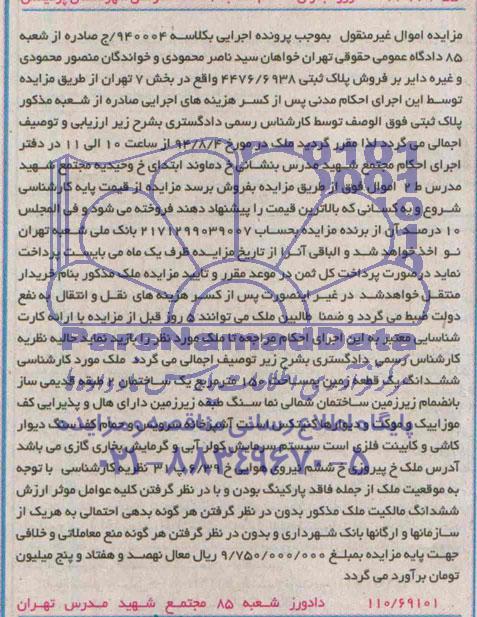 مزایده اموال غیرمنقول بموجب پرونده اجرایی بکلاسه ۹۴۰۰۰۴/ج صادره از شعبه
۸۵ دادگاه عمومی حقوقی تهران خواهان سید ناصر محمودی و خواندگان منصور محمودی
و غیره دایر بر فروش پلاک ثبتی ۴۴۷۶/۶۹۳۸ واقع در بخش ۷ تهران از طریق مزایده
توسط این اجرای احکام مدنی پس از کسر هزینه های اجرایی صادره از شعبه مذکور
پلاک ثبتی فوق الوصف توسط کارشناس رسمی دادگستری بشرح زیر ارزیابی و توصیف
اجمالی می گردد لذا مقرر گردید ملک در مورخ ۹۴/۸/۴ از ساعت ۱۰ الی ۱۱ در دفتر
اجرای احکام مجتمع شهید مدرس بنشانی خ دماوند ابتدای خ وحیدیه مجتمع شهید
مدرس ط ۲ اموال فوق از طریق مزایده بفروش برسد مزایده از قیمت پایه کارشناسی
شروع و به کسانی که بالاترین قیمت را پیشنهاد دهند فروخته می شود و فی المجلس
۱۰ درصد آن از برنده مزایده بحساب ۲۱۷۱۲۹۹۰۳۹۰۰۷ بانک ملی شعبه تهران
نو اخذ خواهد شد و الباقی آنرا از تاریخ مزایده ظرف یک ماه می بایست پرداخت
نماید در صورت پرداخت کل ثمن در موعد مقرر و تایید مزایده ملک مذکور بنام خریدار
منتقل خواهد شد در غیر اینصورت پس از کسر هزینه های نقل و انتقال به نفع
دولت ضبط می گردد و ضمنا طالبین ملک می توانند ۵ روز قبل از مزایده با ارایه کارت
شناسایی معتبر به این اجرای احکام مراجعه تا ملک مورد نظر را بازدید نماید حالیه نظریه
کارشناس رسمی دادگستری بشرح زیر توصیف اجمالی می گردد ملک مورد کارشناسی
ششدانگ یک قطعه زمین بمساحت ۱۵۰ مترمربع یک ساختمان ۲ طبقه قدیمی ساز
بانضمام زیرزمین ساختمان شمالی نما سنگ طبقه زیرزمین دارای هال و پذیرایی کف
موزاییک و موکت و دیوارها گچکاری است آشپزخانه سرویس و حمام کف سنگ دیوار
کاشی و کابینت فلزی است سیستم سرمایش کولر آبی و گرمایش بخاری گازی می باشد
آدرس ملک خ پیروزی خ ششم نیروی هوایی خ ۳/۳۹ پ نظریه کارشناسی با توجه
به موقعیت ملک از جمله فاقد پارکینگ بودن و با در نظر گرفتن کلیه عوامل موثر ارزش
ششدانگ مالکیت ملک مذکور بدون در نظر گرفتن هر گونه بدهی احتمالی به هریک از
سازمانها و ارگانها بانک شهرداری و بدون در نظر گرفتن هر گونه منع معاملاتی و خلافی
جهت پایه مزایده بمبلغ ۹/۷۵۰/۰۰۰/۰۰۰ ریال معال نهصد و هفتاد و پنج میلیون
تومان برآورد می گردد
۱۱۰/۶۹۱۰۱ دادورز شعبه ۸۵ مجتمع شهید مدرس تهران
ParsNamadData
پایگاه اطلاع رسانی مناقصه و مزایده
۰۲۱-۸۸۳۴۹۶۷۰-۵